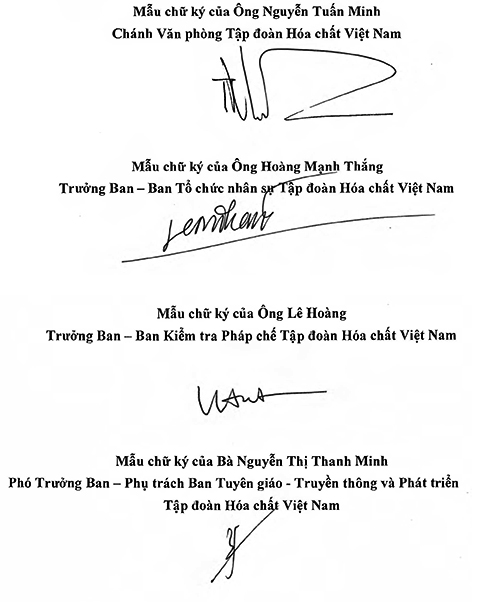 Mẫu chữ ký của Ông Nguyễn Tuấn Minh
Chánh Văn phòng Tập đoàn Hóa chất Việt Nam
Mẫu chữ ký của Ông Hoàng Mạnh Thắng
Trưởng Ban – Ban Tổ chức nhân sự Tập đoàn Hóa chất Việt Nam
Mẫu chữ ký của Ông Lê Hoàng
Trưởng Ban – Ban Kiểm tra Pháp chế Tập đoàn Hóa chất Việt Nam
Mẫu chữ ký của Bà Nguyễn Thị Thanh Minh
Phó Trưởng Ban – Phụ trách Ban Tuyên giáo - Truyền thông và Phát triển
Tập đoàn Hóa chất Việt Nam